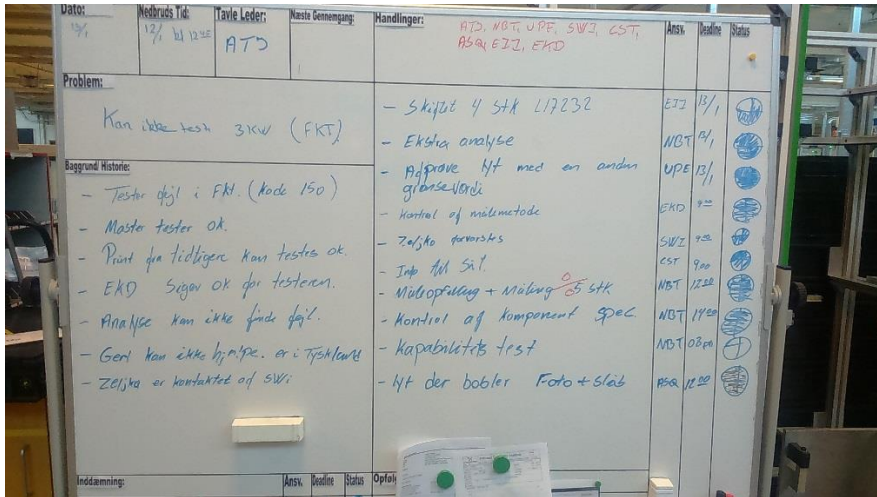 Dato:
13/1
Nedbruds Tid:
12/1 kl 12
Tavle Leder:
ATJ
Næste Gennemgang:
Handlinger:
ATJ, NBT, UPE, SWI, CST,
ASQ, EII, EKD
Ansv.
Deadline
Status
Problem:
Kan ikke teste 3KW (FKT)
Baggrund/ Historie:
- Tester fejl i FKT. (Kode 150)
- Master tester ok.
- Print fra tidligere kan testes ok.
- EKD Siger ok for testeren.
- Analyse kan ikke finde fejl.
- Gert kan ikke hjælpe. er i Tyskland
- Zeljka er kontaktet af SWI
- Skiftet 4 Stk L17232 EII 13/1
- Ekstra analyse NBT 13/1
- Afprøve lyt med en anden UPE 13/1
grænseværdi
- Kontrol af målemetode EKD 9
- Zeljko SWI 9
- Info til Sil. CST 9
- Måleopfølling + Måling 5 stk NBT 12
- Kontrol af Komponent Spec. NBT 14
- Kapabilitets test NBT 08
- lyt der bobler Foto + Slib ASQ 12
Inddæmning:
Ansv.
Deadline
Status